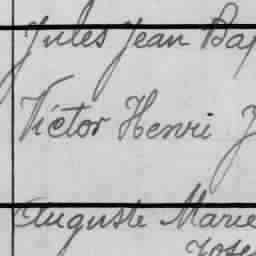 Jules Jean Bap
Victor Henri J
Auguste Marie
Jose